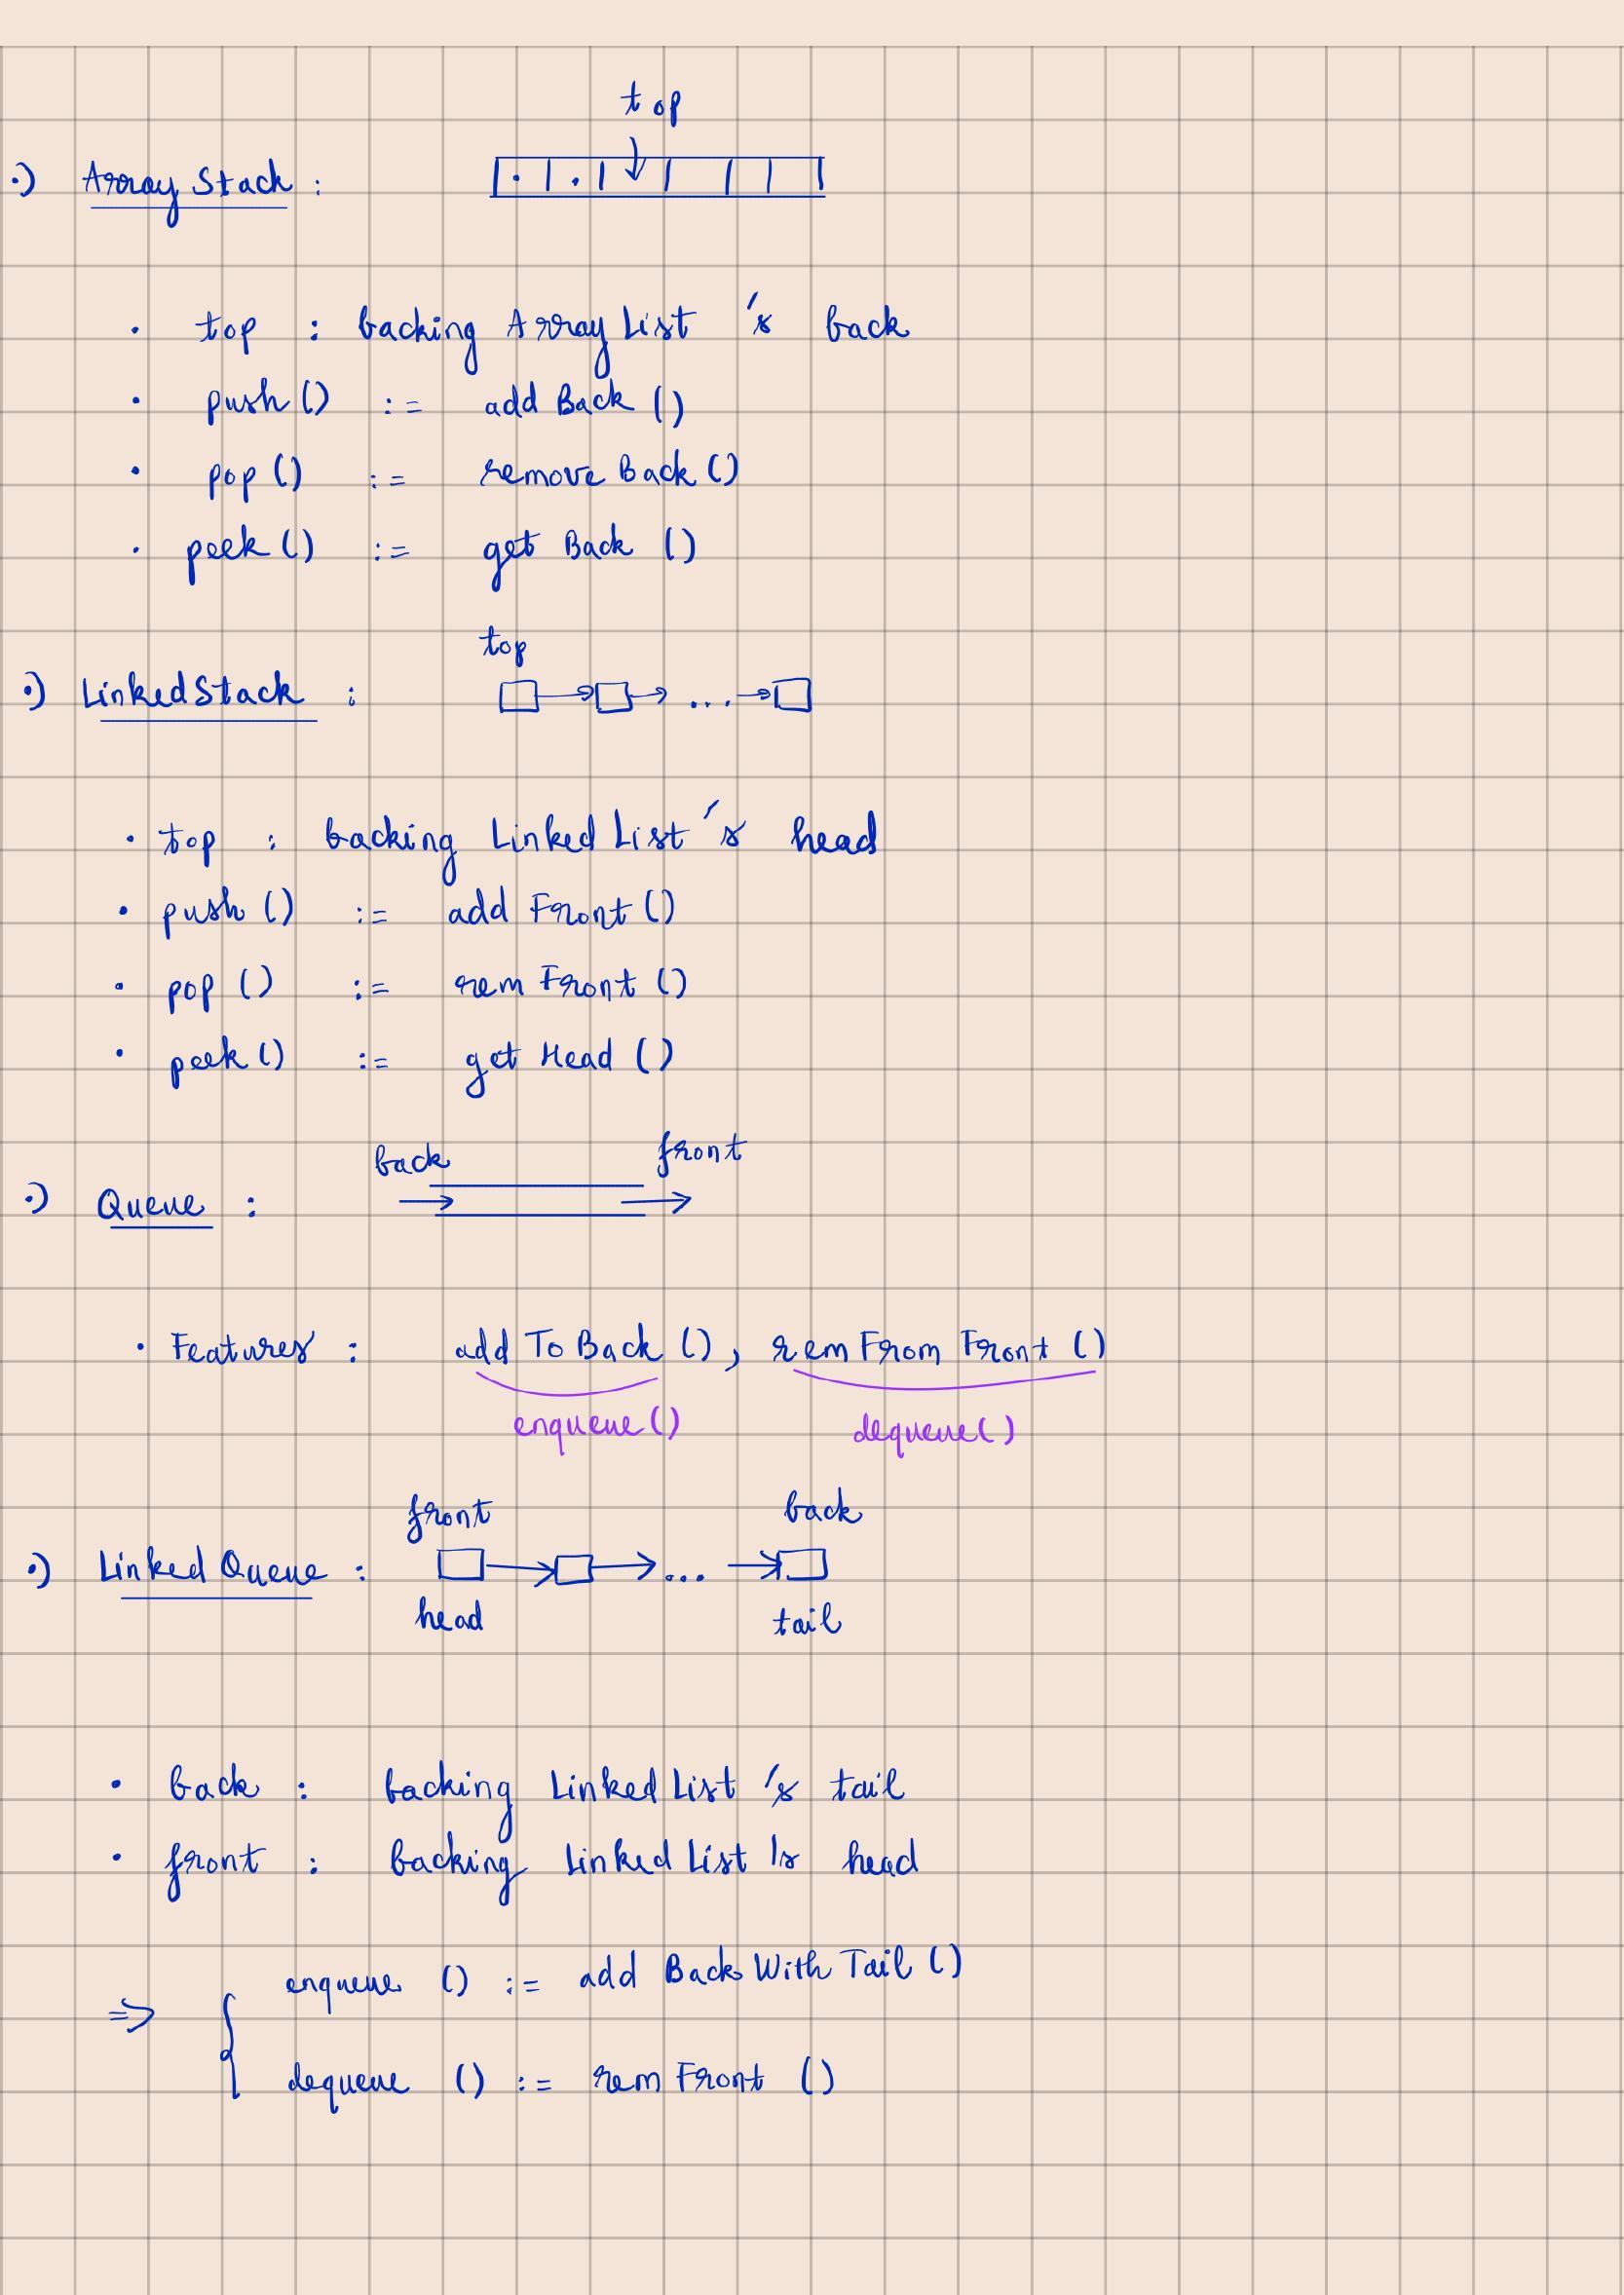 top
•) Array Stack :
• top : backing ArrayList 's back
• push() := addBack()
• pop() := removeBack()
• peek() := getBack()
top
•) LinkedStack : ...
• top : backing LinkedList 's head
• push() := addFront()
• pop() := remFront()
• peek() := getHead()
back front
•) Queue :
• Features : addToBack(), remFromFront()
enqueue() dequeue()
front back
•) Linked Queue : ...
head tail
• back : backing LinkedList 's tail
• front : backing LinkedList 's head
enqueue() := addBackWithTail()
=> {
dequeue() := remFront()